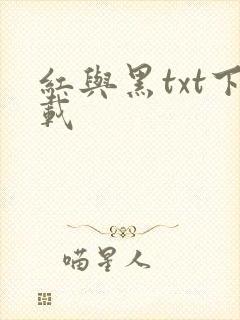 紅與黑txt下
載
喵星人